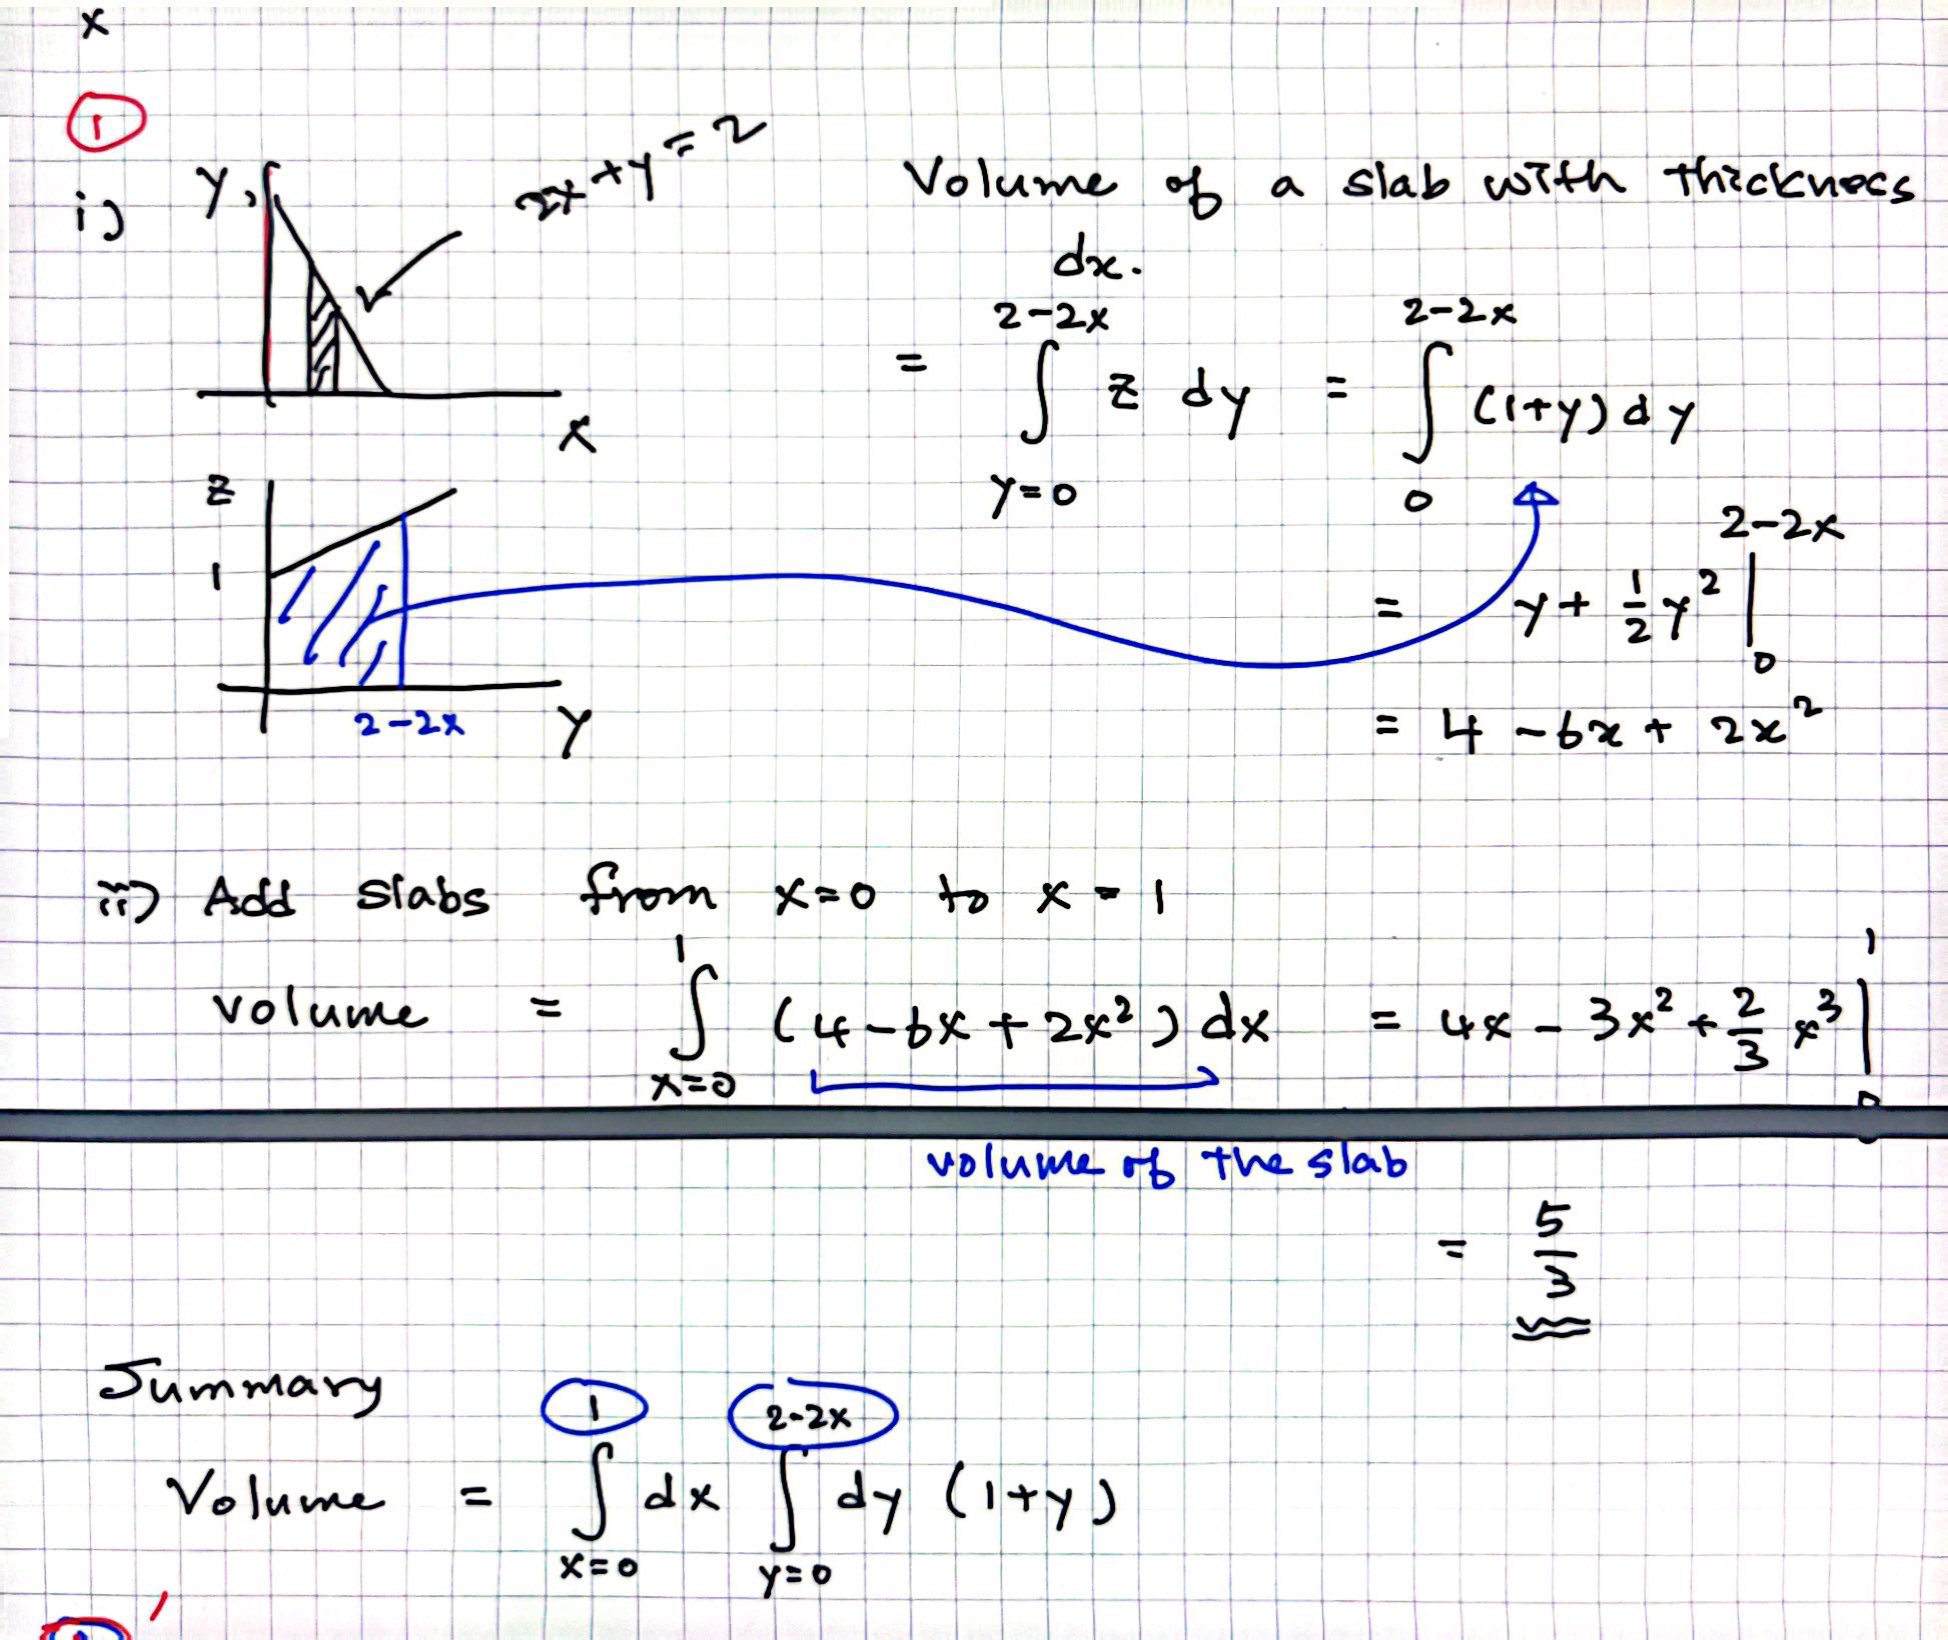 x
1
i) y, 2x+y=2
Volume of a slab with thickness
dx.
= ∫_{y=0}^{2-2x} z dy = ∫_{0}^{2-2x} (1+y) dy
x
z
1
2-2x y
= y + 1/2 y² |_{0}^{2-2x}
= 4 - 6x + 2x²
ii) Add slabs from x=0 to x=1
volume = ∫_{x=0}^{1} (4-6x+2x²) dx = 4x - 3x² + 2/3 x³ |_{0}^{1}
volume of the slab
= 5/3
Summary
Volume = ∫_{x=0}^{1} dx ∫_{y=0}^{2-2x} dy (1+y)